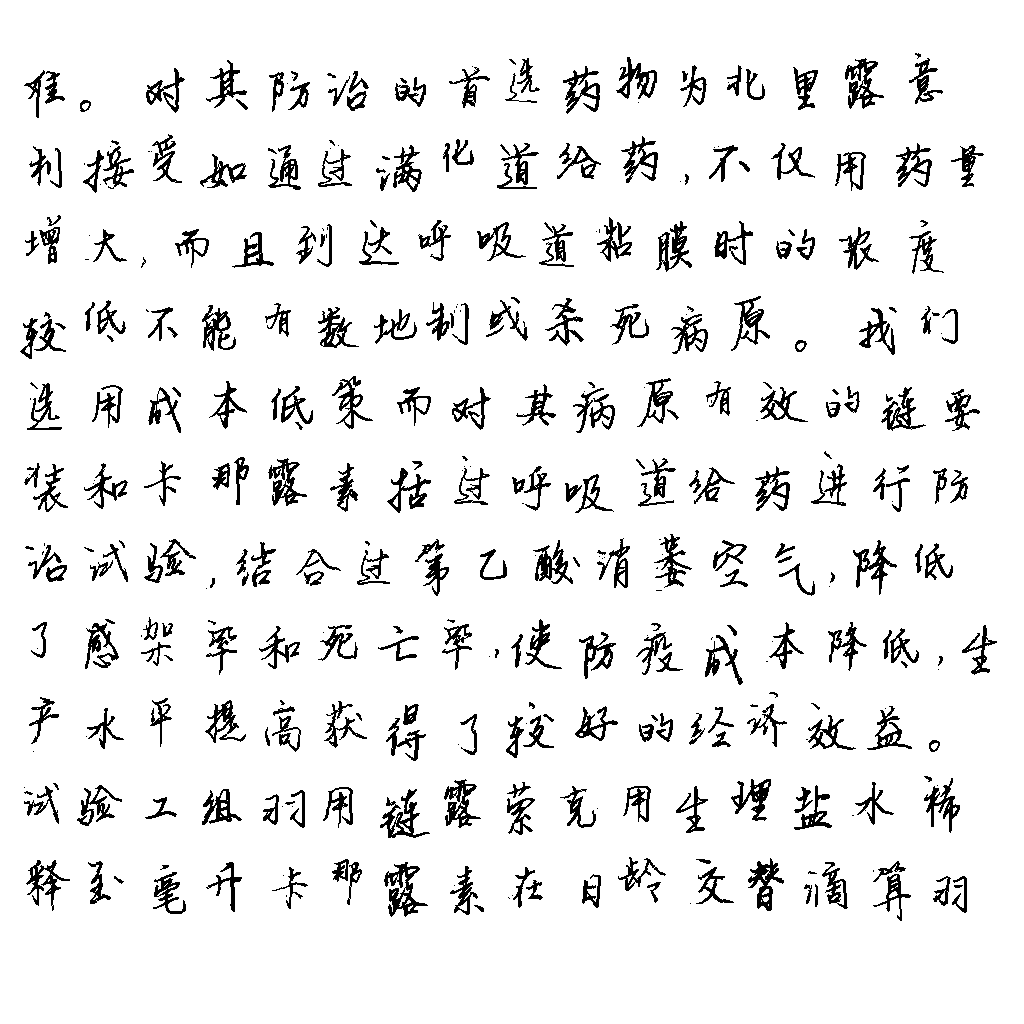 难。对其防治的首选药物为北里露意
利接受如通过满化道给药,不仅用药量
增大,而且到达呼吸道粘膜时的浓度
较低不能有数地制或杀死病原。我们
选用成本低策而对其病原有效的链要
装和卡那露素括过呼吸道给药进行防
治试验,结合过第乙酸消萎空气,降低
了感架率和死亡率,使防疫成本降低,生
产水平提高获得了较好的经济效益。
试验工组羽用链露萦克用生理盐水稀
释至毫升卡那露素在日龄交替滴算羽